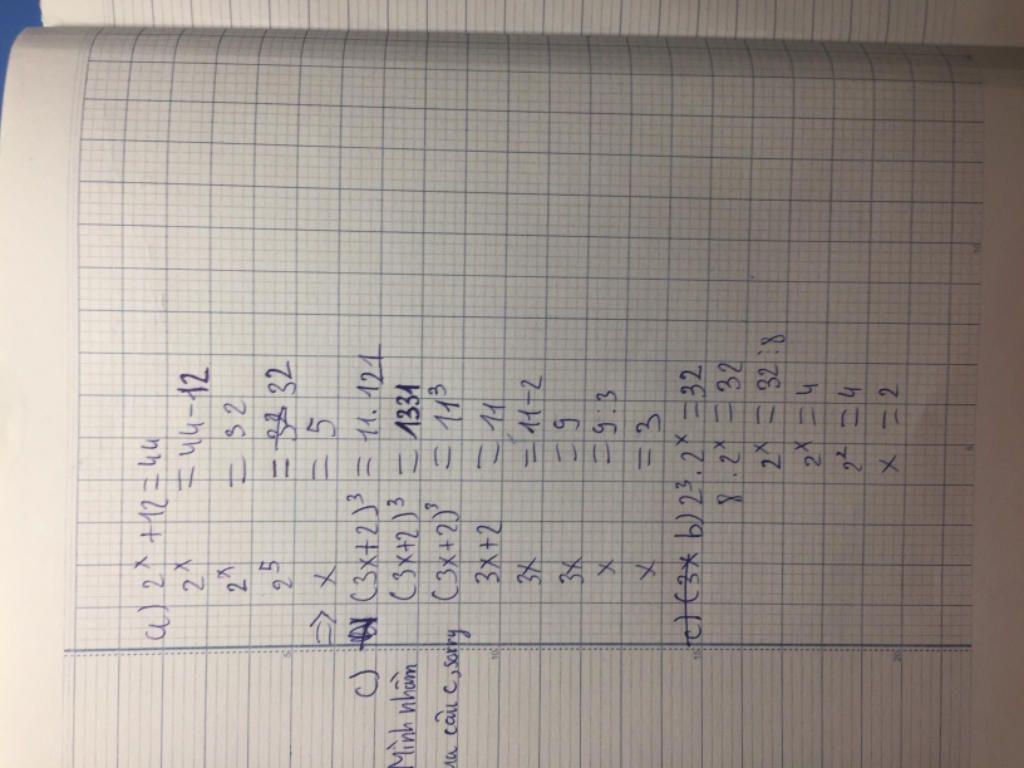 a) 2ˣ + 12 = 44
2ˣ = 44 - 12
2ˣ = 32
2⁵ = 32 32
=> x = 5
c) (3x+2)³ = 11 . 121
(3x+2)³ = 1331
(3x+2)³ = 11³
3x+2 = 11
3x = 11 - 2
3x = 9
x = 9 : 3
x = 3
Mình nhầm
là câu c, sorry
c) (3x b) 2³ . 2ˣ = 32
8 . 2ˣ = 32
2ˣ = 32 : 8
2ˣ = 4
2² = 4
x = 2
5
10
15
20